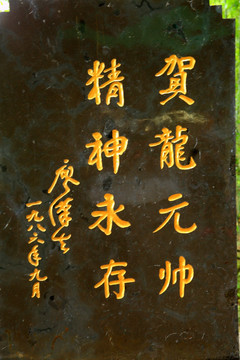 賀龍元帅
精神永存
廖漢生
一九八六年九月